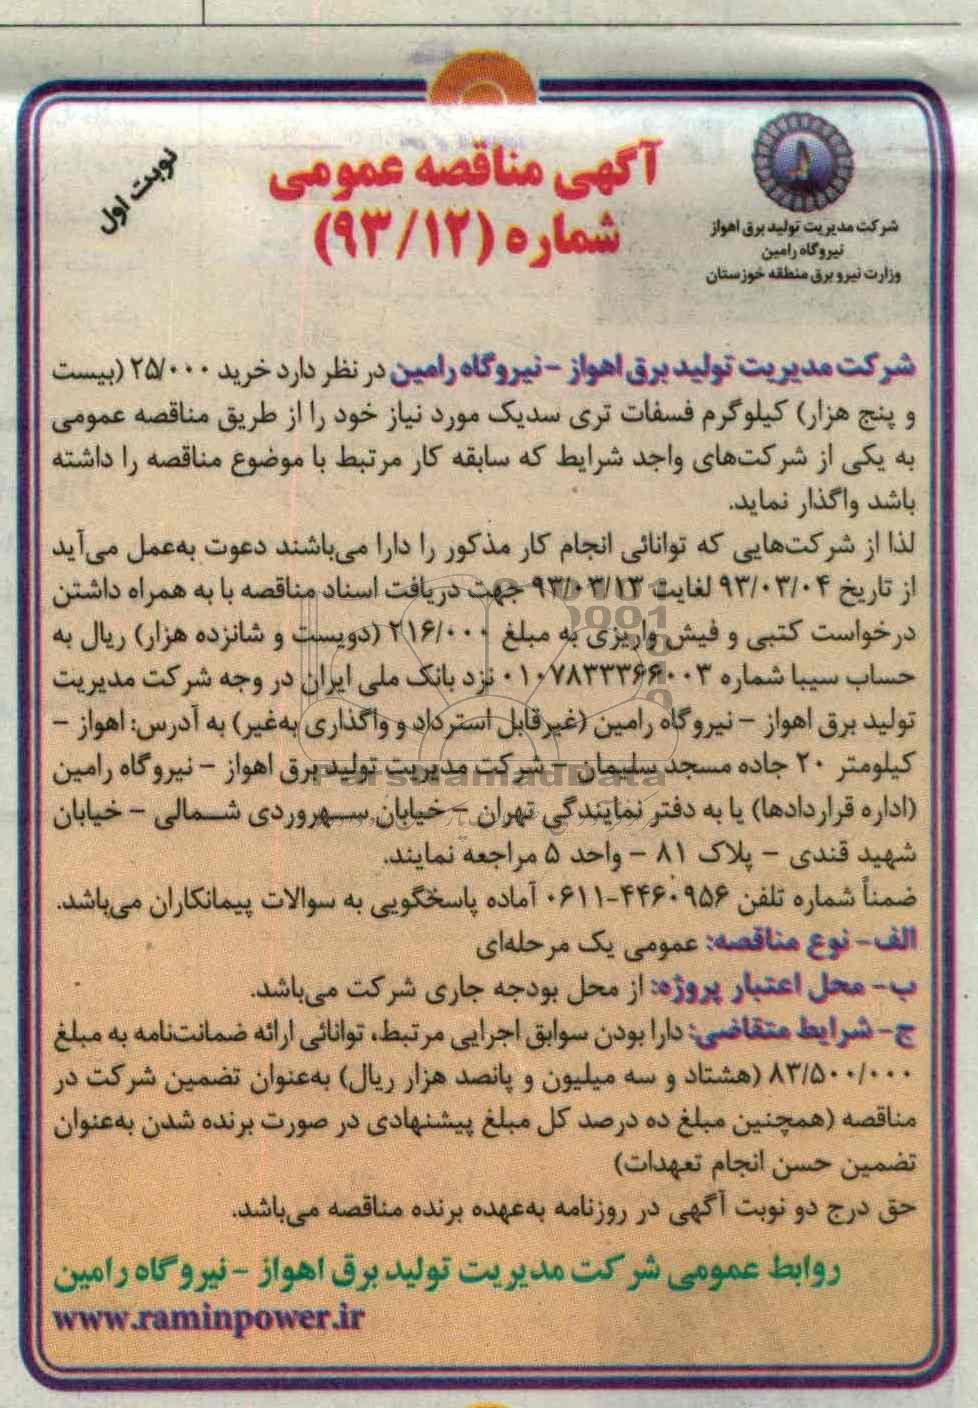 آگهی مناقصه عمومی
شماره (۹۳/۱۲)
نوبت اول
شرکت مدیریت تولید برق اهواز
نیروگاه رامین
وزارت نیرو برق منطقه خوزستان
شرکت مدیریت تولید برق اهواز - نیروگاه رامین در نظر دارد خرید ۲۵/۰۰۰ (بیست
و پنج هزار) کیلوگرم فسفات تری سدیک مورد نیاز خود را از طریق مناقصه عمومی
به یکی از شرکت‌های واجد شرایط که سابقه کار مرتبط با موضوع مناقصه را داشته
باشد واگذار نماید.
لذا از شرکت‌هایی که توانائی انجام کار مذکور را دارا می‌باشند دعوت به‌عمل می‌آید
از تاریخ ۹۳/۰۳/۰۴ لغایت ۹۳/۰۳/۱۳ جهت دریافت اسناد مناقصه با به همراه داشتن
درخواست کتبی و فیش واریزی به مبلغ ۲۱۶/۰۰۰ (دویست و شانزده هزار) ریال به
حساب سیبا شماره ۰۱۰۷۸۳۳۳۶۶۰۰۳ نزد بانک ملی ایران در وجه شرکت مدیریت
تولید برق اهواز - نیروگاه رامین (غیرقابل استرداد و واگذاری به‌غیر) به آدرس: اهواز -
کیلومتر ۲۰ جاده مسجد سلیمان - شرکت مدیریت تولید برق اهواز - نیروگاه رامین
(اداره قراردادها) یا به دفتر نمایندگی تهران - خیابان سهروردی شمالی - خیابان
شهید قندی - پلاک ۸۱ - واحد ۵ مراجعه نمایند.
ضمناً شماره تلفن ۴۴۶۰۹۵۶-۰۶۱۱ آماده پاسخگویی به سوالات پیمانکاران می‌باشد.
الف- نوع مناقصه: عمومی یک مرحله‌ای
ب- محل اعتبار پروژه: از محل بودجه جاری شرکت می‌باشد.
ج- شرایط متقاضی: دارا بودن سوابق اجرایی مرتبط، توانائی ارائه ضمانت‌نامه به مبلغ
۸۳/۵۰۰/۰۰۰ (هشتاد و سه میلیون و پانصد هزار ریال) به‌عنوان تضمین شرکت در
مناقصه (همچنین مبلغ ده درصد کل مبلغ پیشنهادی در صورت برنده شدن به‌عنوان
تضمین حسن انجام تعهدات)
حق درج دو نوبت آگهی در روزنامه به‌عهده برنده مناقصه می‌باشد.
روابط عمومی شرکت مدیریت تولید برق اهواز - نیروگاه رامین
www.raminpower.ir
ParsNamadData